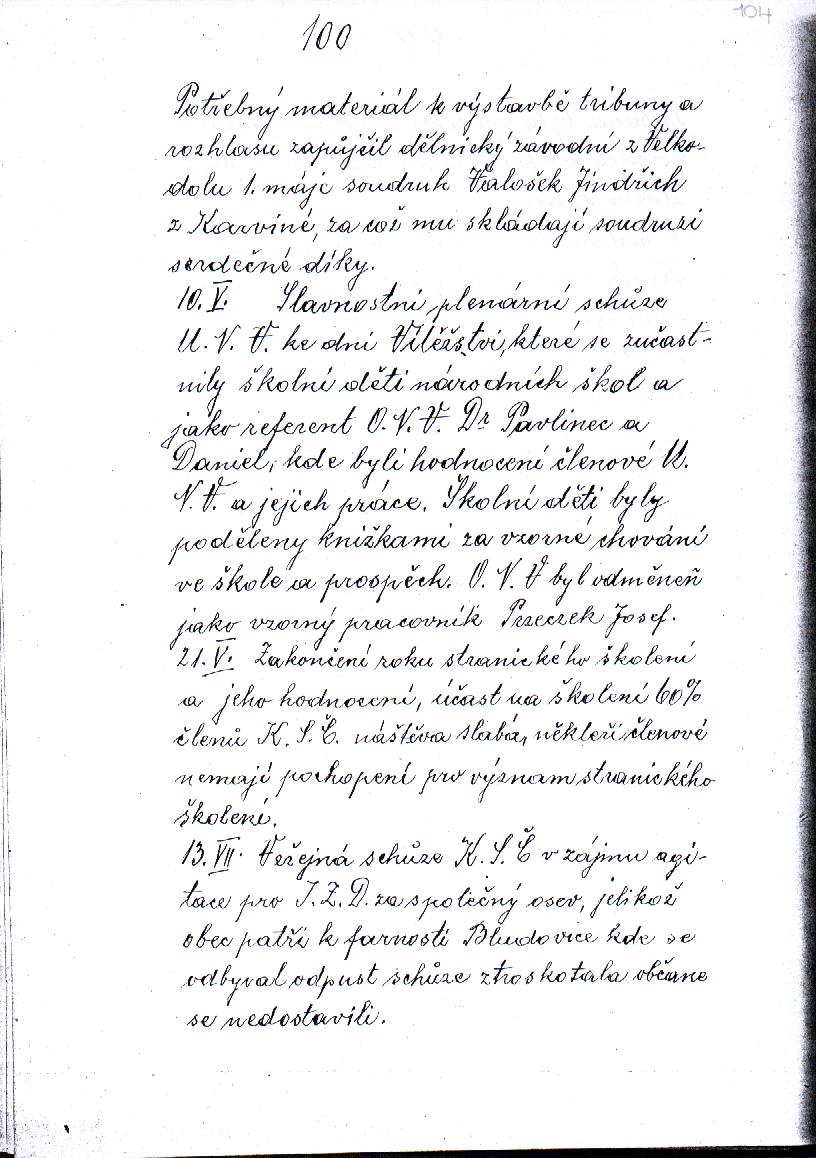 104
100
Potřebný materiál k výstavbě tribuny a
rozhlasu zapůjčil dělnický závodní z Velko-
dolu 1. máje soudruh Valošek Jindřich
z Karviné, za což mu skládají soudruzi
srdečné díky.
10. V. Slavnostní plenární schůze
M. N. V. ke dni Vítězství, které se zúčast-
nily školní děti národních škol a
jako referent O. N. V. Dr Pavlinec a
Daniel, kde byli hodnocení členové M.
N. V. a jejich práce. Školní děti byly
poděleny knížkami za vzorné chování
ve škole a prospěch. O. N. V byl odměneň
jako vzorný pracovník Pzeczek Josef.
21. V. Zakončení roku stranického školení
a jeho hodnocení, účast na školení 60%
členů K. S. Č. náštěva slabá, někteří členové
nemají pochopení pro význam stranického
školení.
13. VII. Veřejná schůze K. S. Č v zájmu agi-
tace pro J. Z. D. za společný osev, jelikož
obec patří k farnosti Bludovice kde se
odbýval odpust schůze ztroskotala občane
se nedostavili.